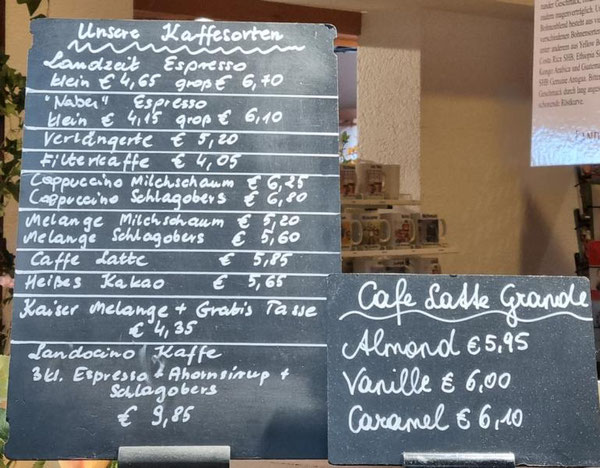 Unsere Kaffesorten
Landzeit Espresso
klein € 4,65 groß € 6,70
"Naber" Espresso
klein € 4,15 groß € 6,10
Verlängerte € 5,20
Filterkaffe € 4,05
Cappuccino Milchschaum € 6,25
Cappuccino Schlagobers € 6,80
Melange Milchschaum € 5,20
Melange Schlagobers € 5,60
Caffe Latte € 5,85
Heißes Kakao € 5,65
Kaiser Melange + Gratis Tasse
€ 4,35
Landocino Kaffe
3kl. Espresso + Ahornsirup +
Schlagobers
€ 9,85
Cafe Latte Grande
Almond € 5,95
Vanille € 6,00
Caramel € 6,10